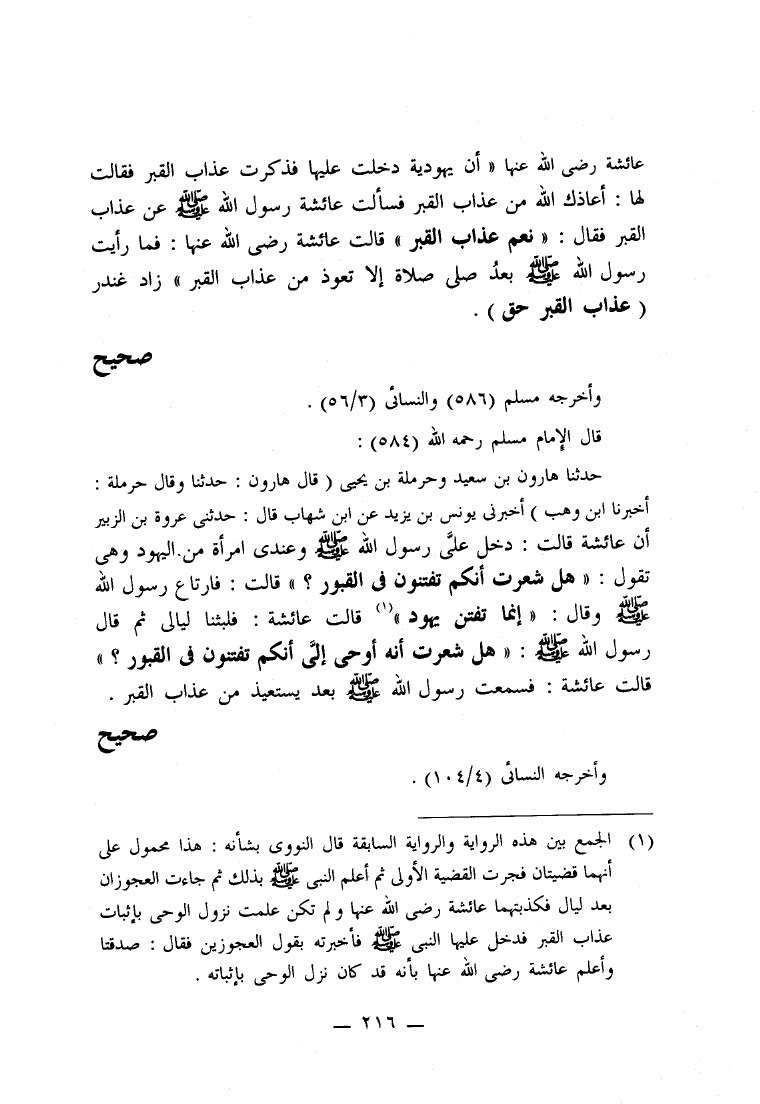 عائشة رضى الله عنها « أن يهودية دخلت عليها فذكرت عذاب القبر فقالت
لها : أعاذك الله من عذاب القبر فسألت عائشة رسول الله ﷺ عن عذاب
القبر فقال : « نعم عذاب القبر » قالت عائشة رضى الله عنها : فما رأيت
رسول الله ﷺ بعدُ صلى صلاة إلا تعوذ من عذاب القبر » زاد غندر
( عذاب القبر حق ) .
صحيح
وأخرجه مسلم (٥٨٦) والنسائى (٥٦/٣) .
قال الإمام مسلم رحمه الله (٥٨٤) :
حدثنا هارون بن سعيد وحرملة بن يحيى ( قال هارون : حدثنا وقال حرملة :
أخبرنا ابن وهب ) أخبرنى يونس بن يزيد عن ابن شهاب قال : حدثنى عروة بن الزبير
أن عائشة قالت : دخل علىَّ رسول الله ﷺ وعندى امرأة من اليهود وهى
تقول : « هل شعرت أنكم تفتنون فى القبور ؟ » قالت : فارتاع رسول الله
ﷺ وقال : « إنما تفتن يهود »(١) قالت عائشة : فلبثنا ليالى ثم قال
رسول الله ﷺ : « هل شعرت أنه أوحى إلىَّ أنكم تفتنون فى القبور ؟ »
قالت عائشة : فسمعت رسول الله ﷺ بعد يستعيذ من عذاب القبر .
صحيح
وأخرجه النسائى (١٠٤/٤) .
(١) الجمع بين هذه الرواية والرواية السابقة قال النووى بشأنه : هذا محمول على
أنهما قضيتان فجرت القضية الأولى ثم أعلم النبى ﷺ بذلك ثم جاءت العجوزان
بعد ليال فكذبتهما عائشة رضى الله عنها ولم تكن علمت نزول الوحى بإثبات
عذاب القبر فدخل عليها النبى ﷺ فأخبرته بقول العجوزين فقال : صدقتا
وأعلم عائشة رضى الله عنها بأنه قد كان نزل الوحى بإثباته .
— ٢١٦ —